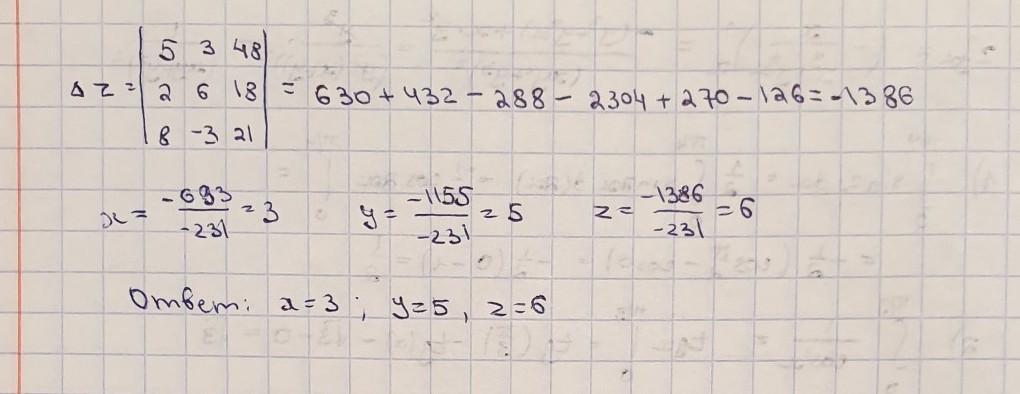 Δz = | 5 3 48 |
| 2 6 18 | = 630 + 432 - 288 - 2304 + 270 - 126 = -1386
| 8 -3 21 |
x = -693/-231 = 3 y = -1155/-231 = 5 z = -1386/-231 = 6
Ответ: x=3; y=5, z=6